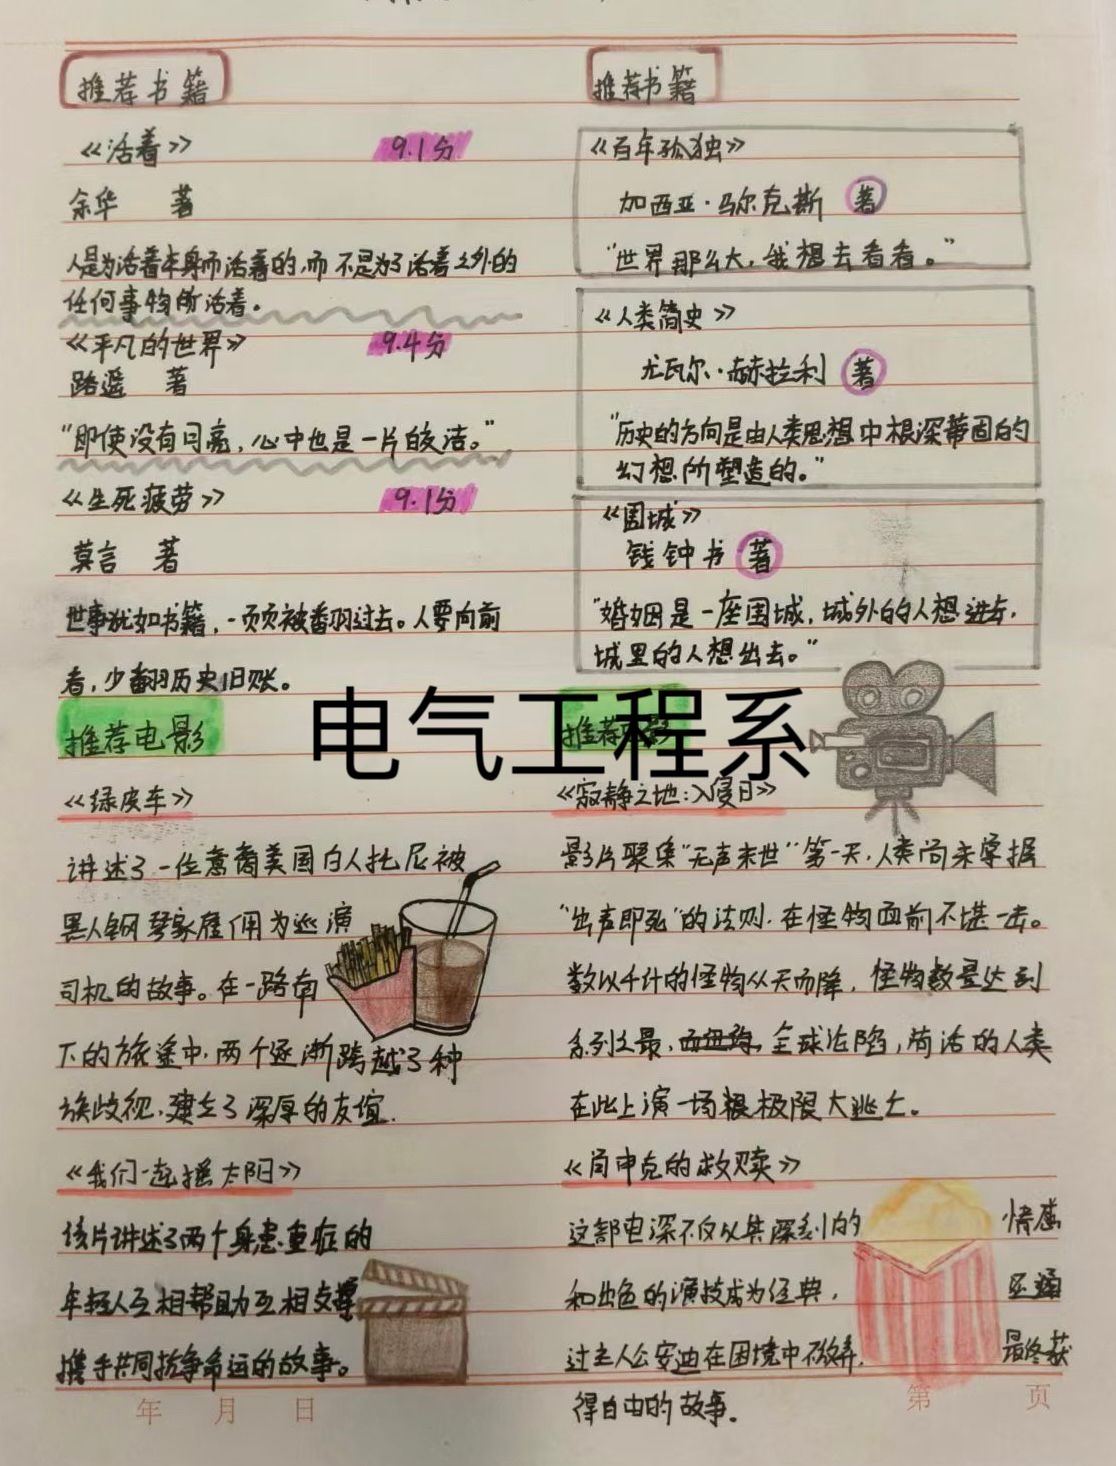 推荐书籍
《活着》 9.1分
余华 著
人是为活着本身而活着的,而不是为了活着之外的
任何事物所活着。
《平凡的世界》 9.4分
路遥 著
“即使没有月亮,心中也是一片皎洁。”
《生死疲劳》 9.1分
莫言 著
世事犹如书籍,一页页被翻过去。人要向前
看,少翻历史旧账。
推荐电影
《绿皮车》
讲述了一位意裔美国白人托尼被
黑人钢琴家雇佣为巡演
司机的故事。在一路南
下的旅途中,两个逐渐跨越了种
族歧视,建立了深厚的友谊.
《我们一起摇太阳》
该片讲述了两个身患重症的
年轻人互相帮助互相支撑
携手共同抗争命运的故事。
年 月 日
推荐书籍
《百年孤独》
加西亚·马尔克斯 著
“世界那么大,我想去看看。”
《人类简史》
尤瓦尔·赫拉利 著
“历史的方向是由人类思想中根深蒂固的
幻想所塑造的。”
《围城》
钱钟书 著
“婚姻是一座围城,城外的人想进去,
城里的人想出去。”
电气工程系
推荐电影
《寂静之地:入侵日》
影片聚集“无声末世”第一天,人类尚未掌握
“出声即死”的法则,在怪物面前不堪一击。
数以千计的怪物从天而降,怪物数量达到
系列之最,全球沦陷,苟活的人类
在此上演一场极限大逃亡。
《肖申克的救赎》
这部电深不仅以其深刻的 情感
和出色的演技成为经典, 还通
过主人公安迪在困境中不放弃, 最终获
得自由的故事.
第 页